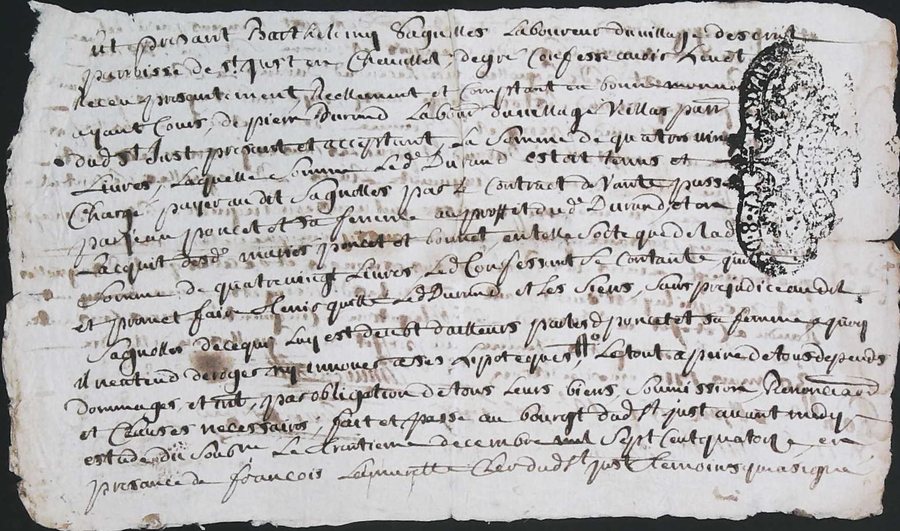 fut presant Barthelemy Sagnolles Laboureur du village descrut
parroisse de st Just en Chevallet degré Confesse avoir Receu
Receu presantement Reellement et Comptant en bonne monn
ayant Cours, de pierre Durand Labour du village Vellas parr
dud st Just presant et acceptant, La Somme de quatrevin
Livres, Laquelle Somme Led Durand estoit tenus et
Chargé payer au dit Sagnolles par Contract de Vante passé
par Jean poncet et sa femme au proffet dud Durand, et en
Lacquit desd maries poncet et bonnet, en telle Sorte que de lad
Somme de quatreving Livres Led Confessent Se Contante quitte
et promet faire tenir quitte Led Durand et Les Siens, Sans prejudice au dit
Sagnolles de ce quy Luy est deubt dailleurs par lesd poncet et sa femme, a quoy
Il nentend deroger ny innover a ses Hipoteques, Le tout a peine de tous depends
dommages et int, par obligation de tous Leurs biens Soumission, Renonciaon
et Clauses necessaires, fait et passe au bourgt dud st just avant midy
estude du Soubne Le trantieme decembre mil Sept Cent quatorze, en
presance de françois Clerc dud st just temoins quy a signé